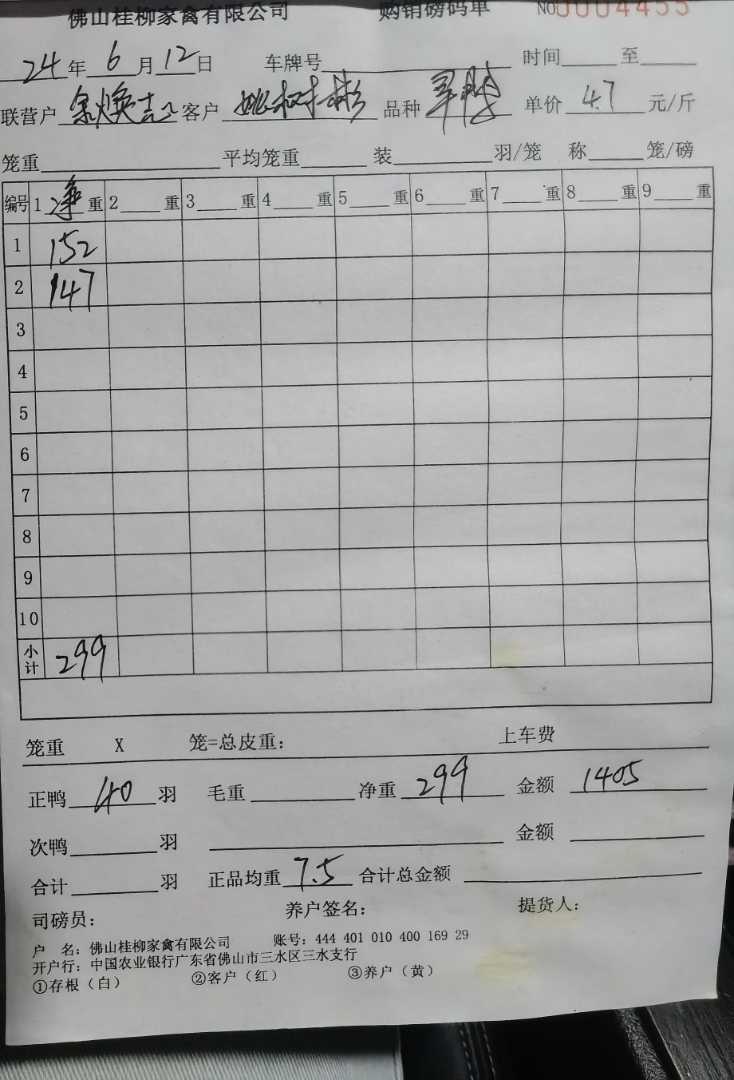 佛山桂柳家禽有限公司 购销磅码单 NO0004455
24年6月12日 车牌号 时间 至
联营户 余焕吉 客户 姚树彬 品种 单价 4.7 元/斤
笼重 平均笼重 装 羽/笼 称 笼/磅
编号 1净重 2 重 3 重 4 重 5 重 6 重 7 重 8 重 9 重
1 152
2 147
3
4
5
6
7
8
9
10
小计 299
笼重 X 笼=总皮重: 上车费
正鸭 40 羽 毛重 净重 299 金额 1405
次鸭 羽 金额
合计 羽 正品均重 7.5 合计总金额
司磅员: 养户签名: 提货人:
户 名: 佛山桂柳家禽有限公司 账号: 444 401 010 400 169 29
开户行: 中国农业银行广东省佛山市三水区三水支行
①存根（白） ②客户（红） ③养户（黄）